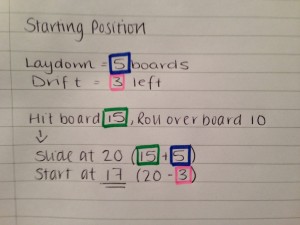 Starting Position
Laydown = 5 boards
Drift = 3 left
Hit board 15, Roll over board 10
↓
Slide at 20 (15+5)
Start at 17 (20-3)